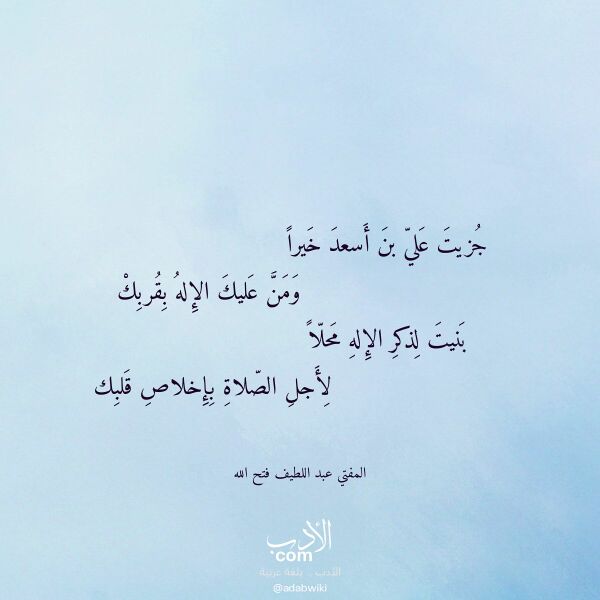 جُزيتَ عَليّ بنَ أَسعدَ خَيراً
وَمَنَّ عَليكَ الإِلهُ بِقُربِكْ
بَنيتَ لِذكرِ الإِلهِ مَحَلّاً
لِأَجلِ الصّلاةِ بِإِخلاصِ قَلبِك
المفتي عبد اللطيف فتح الله
الأدب
com
الأدب .. بلغة عربية
@adabwiki